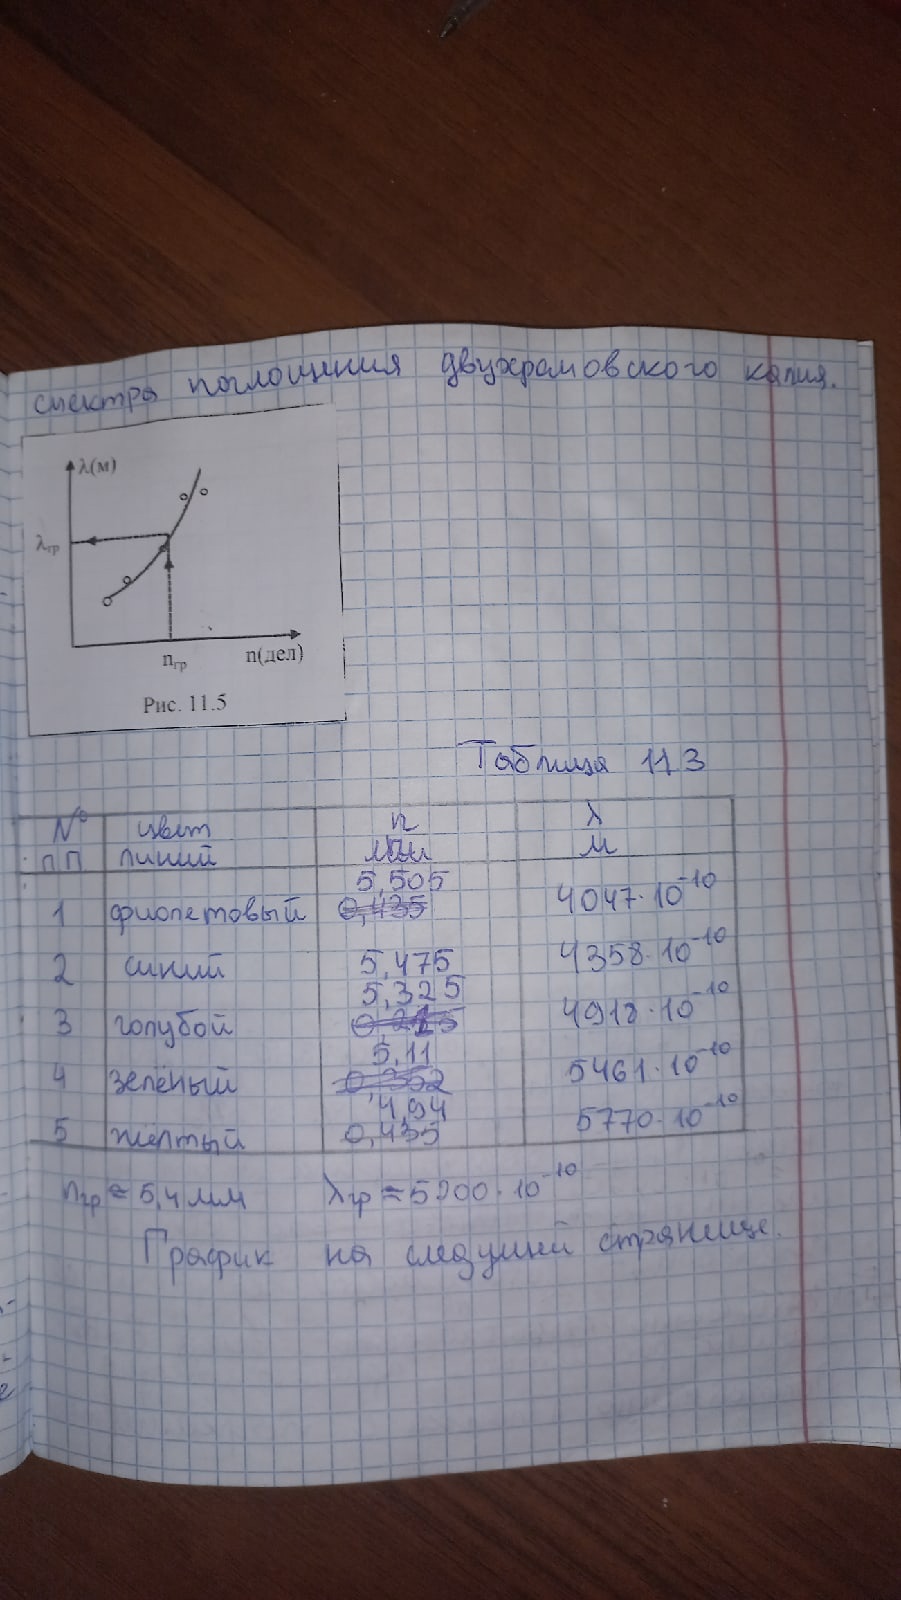 спектра поглощения двухромовского калия.
λ(м)
λгр
nгр n(дел)
Рис. 11.5
Таблица 11.3
№ цвет n λ
пп линий мм м
5,505
1 фиолетовый 0,435 4047·10⁻¹⁰
2 синий 5,475 4358·10⁻¹⁰
5,325
3 голубой 4918·10⁻¹⁰
5,11
4 зелёный 0,352 5461·10⁻¹⁰
4,94
5 жёлтый 0,435 5770·10⁻¹⁰
nгр ≈ 5,4 мм λгр ≈ 5200·10⁻¹⁰
График на следущей странице.